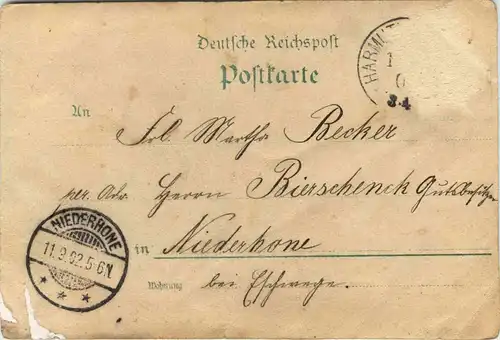 Deutsche Reichspost
Postkarte
HARMUT
1
0
3-4
An Frl. Martha Becker
per. Adr. Herrn Bierschenck Gutsbesitzer
in Niederhone
Wohnung bei Eschwege.
NIEDERHONE
11.9.02.5-6N.